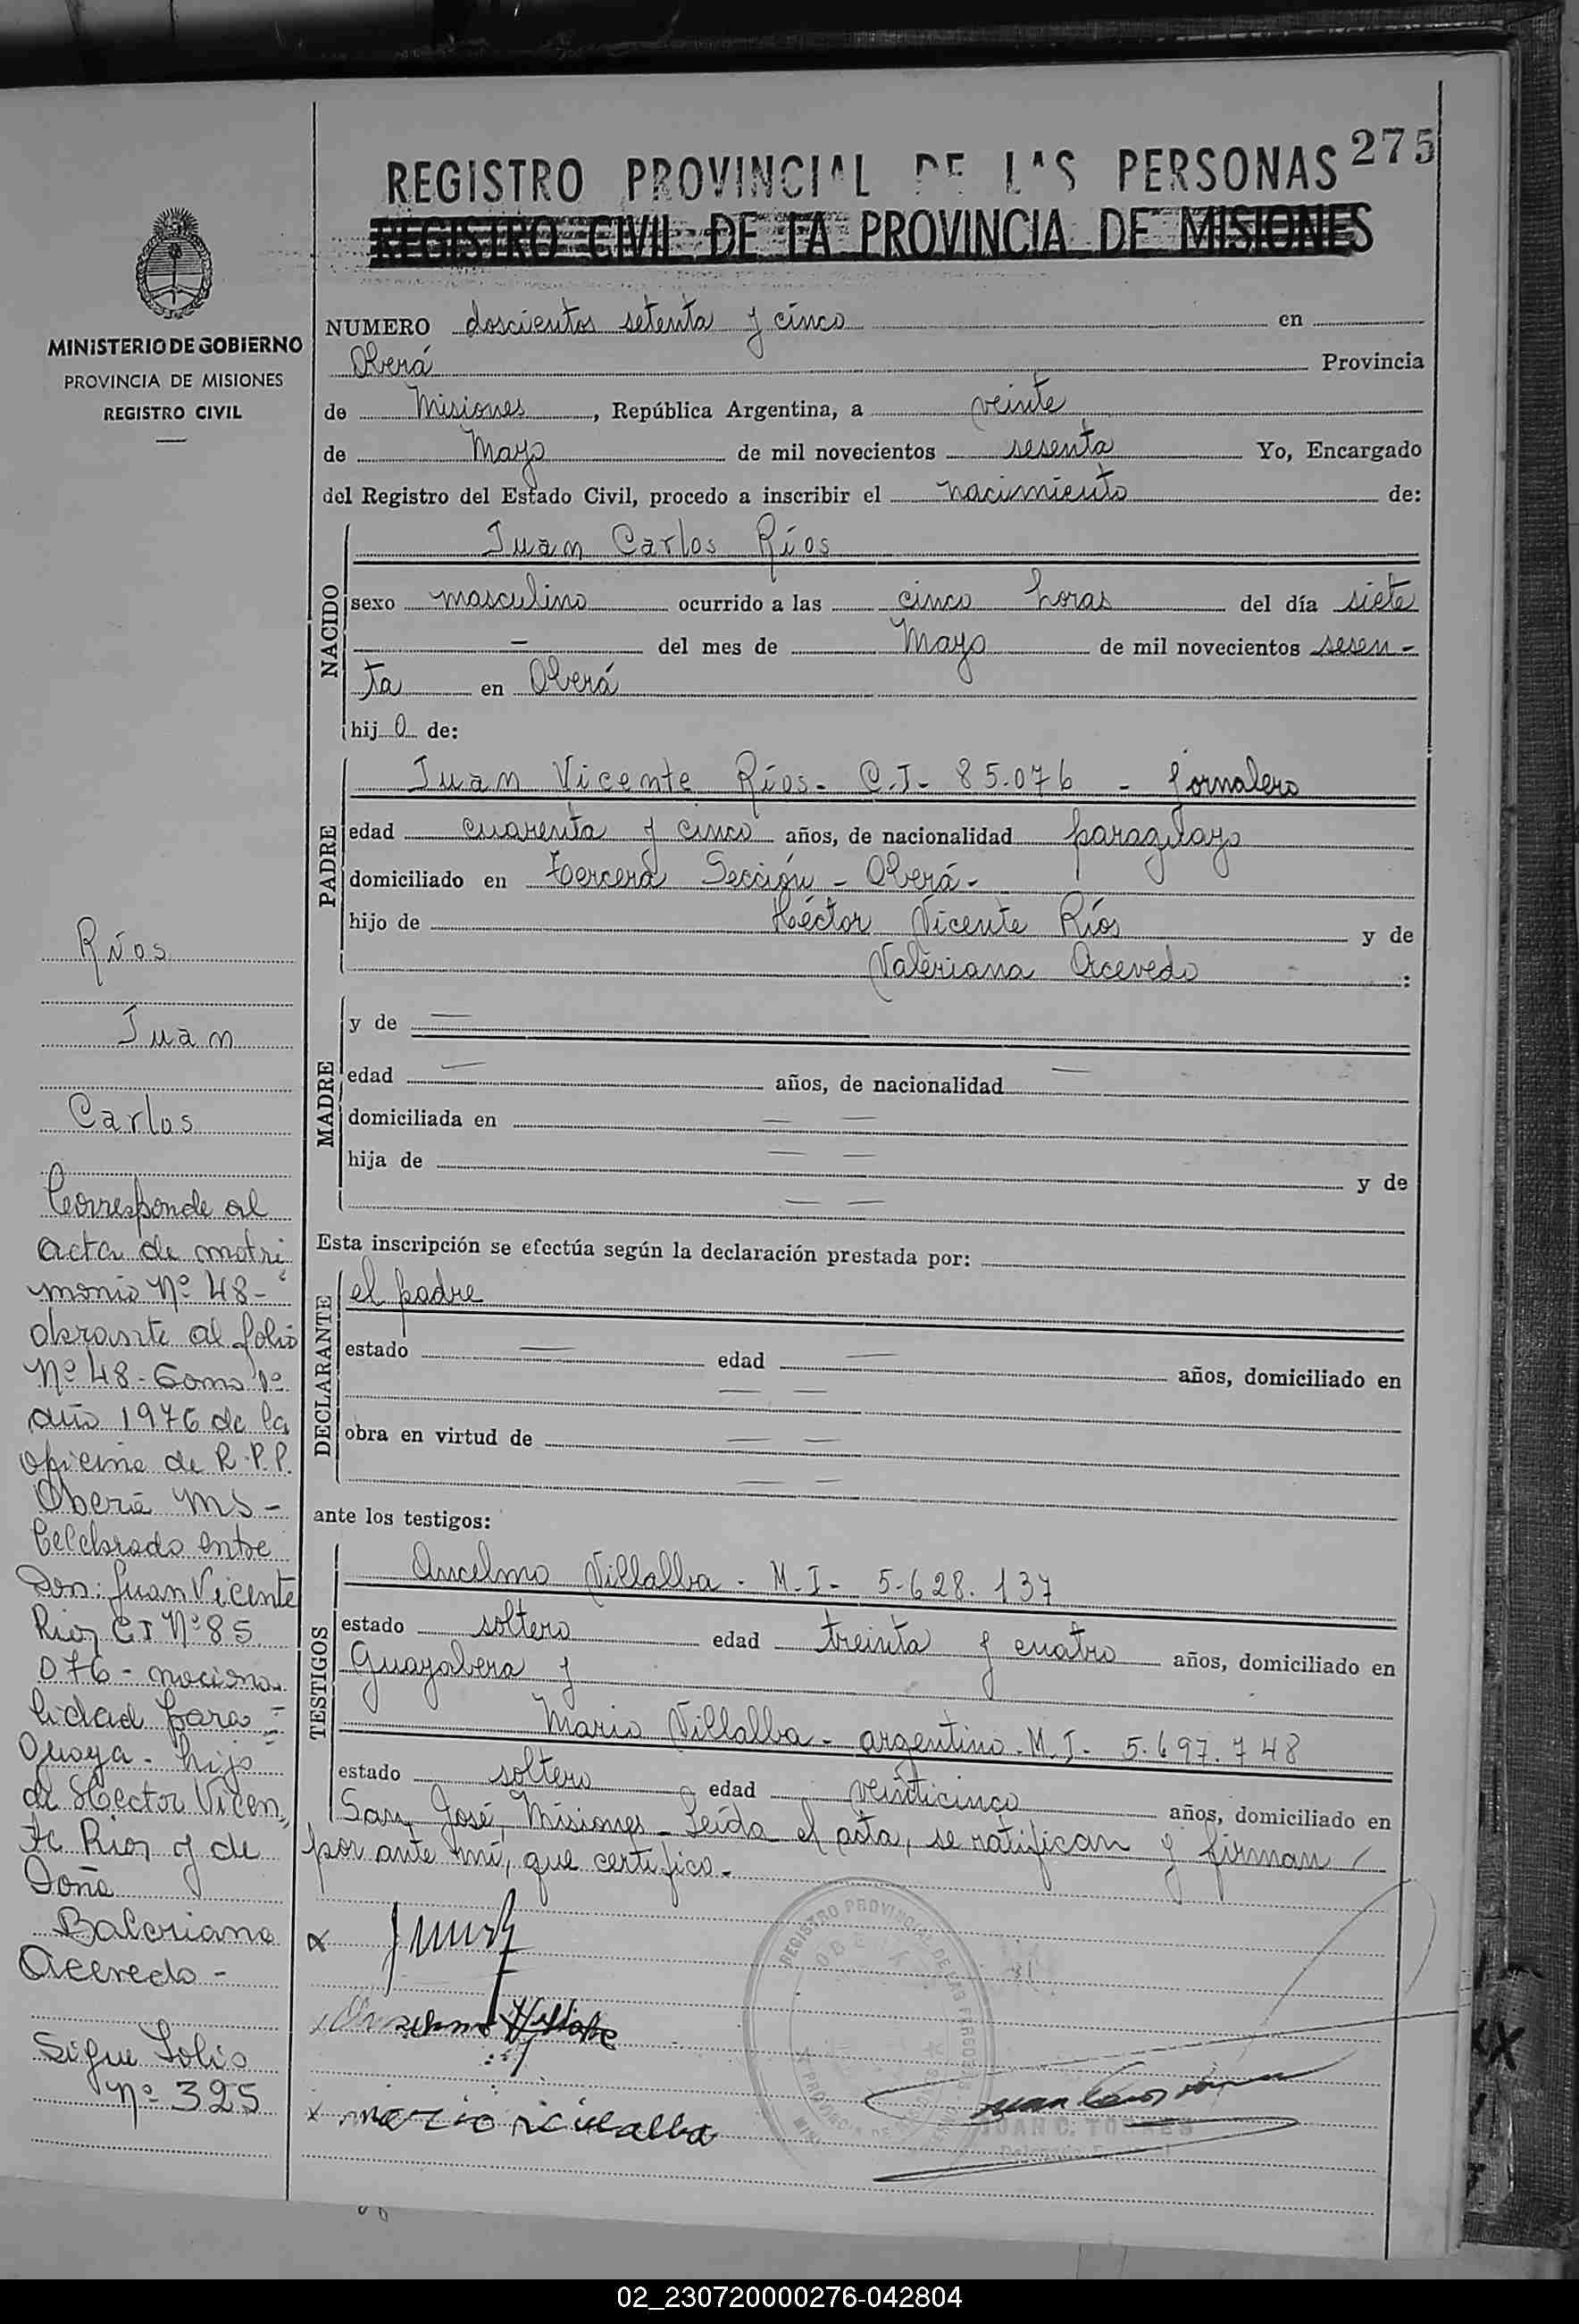 275
REGISTRO PROVINCIAL DE LAS PERSONAS
REGISTRO CIVIL DE LA PROVINCIA DE MISIONES
MINISTERIO DE GOBIERNO
PROVINCIA DE MISIONES
REGISTRO CIVIL
NUMERO doscientos setenta y cinco en
Oberá Provincia
de Misiones, República Argentina, a veinte
de Mayo de mil novecientos sesenta Yo, Encargado
del Registro del Estado Civil, procedo a inscribir el nacimiento de:
NACIDO
Juan Carlos Ríos
sexo masculino ocurrido a las cinco horas del día siete
— del mes de Mayo de mil novecientos sesen-
ta en Oberá
hijo de:
PADRE
Juan Vicente Ríos- C.I- 85.076 - Jornalero
edad cuarenta y cinco años, de nacionalidad paragüayo
domiciliado en tercera Sección - Oberá-
hijo de Héctor Vicente Ríos y de
Valeriana Acevedo :
MADRE
y de —
edad — años, de nacionalidad —
domiciliada en — —
hija de — — y de
— —
Esta inscripción se efectúa según la declaración prestada por:
DECLARANTE
el padre
estado — edad — años, domiciliado en
— —
obra en virtud de — —
— —
ante los testigos:
TESTIGOS
Ancelmo Villalba - M.I- 5.628.137
estado soltero edad treinta y cuatro años, domiciliado en
Guayabera y
Mario Villalba- argentino-M.I- 5.697.748
estado soltero edad veinticinco años, domiciliado en
San José, Misiones- Leída el acta, se ratifican y firman
por ante mí, que certifico-
Ríos
Juan
Carlos
Corresponde al
acta de matri
monio Nº 48-
obrante al folio
Nº 48- Tomo 1º
año 1976 de la
oficina de R.P.P.
Oberá Ms-
Celebrado entre
Don: Juan Vicente
Rios CI Nº 85.
076- naciona-
lidad para=
guaya- hijo
de Hector Vicen
te Rios y de
Doña
Baleriana
Acevedo-
Sigue Folio
Nº 325
Mario Villalba
REGISTRO PROVINCIAL DE LAS PERSONAS
OBERA
JUAN C. TORRES
02_230720000276-042804